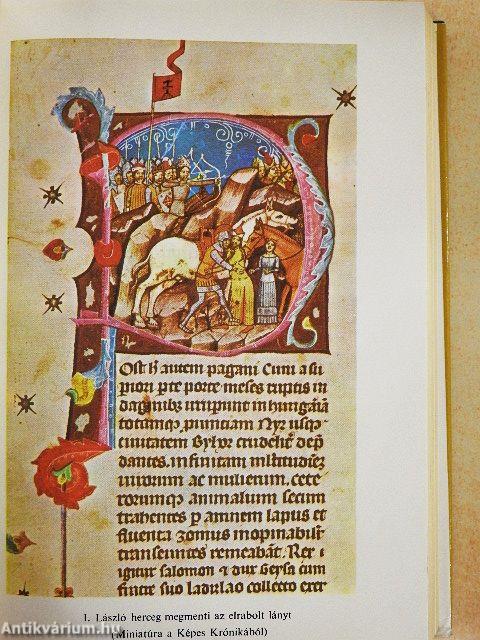 Ost h̄ autem pagani Cum a su
piori pte porte meses ruptis in
daginibꝫ irrupunt in hungariā
totamqꝫ pvinciam Nyr usqꝫ
civitatem Byhor crudelit̄ dep̄
dantes, infinitam multitudiēꝫ
virorum ac mulierum, cete
rorumqꝫ animalium secum
trahentes p amnem lapus et
fluenta zomus inopinabilit̄
transeuntes remeabāt. Rex
igitur salomon et dux Geysa cum
fratre suo Ladizlao collecto exer
I. László herceg megmenti az elrabolt lányt
(Miniatúra a Képes Krónikából)
Antikvárium.hu